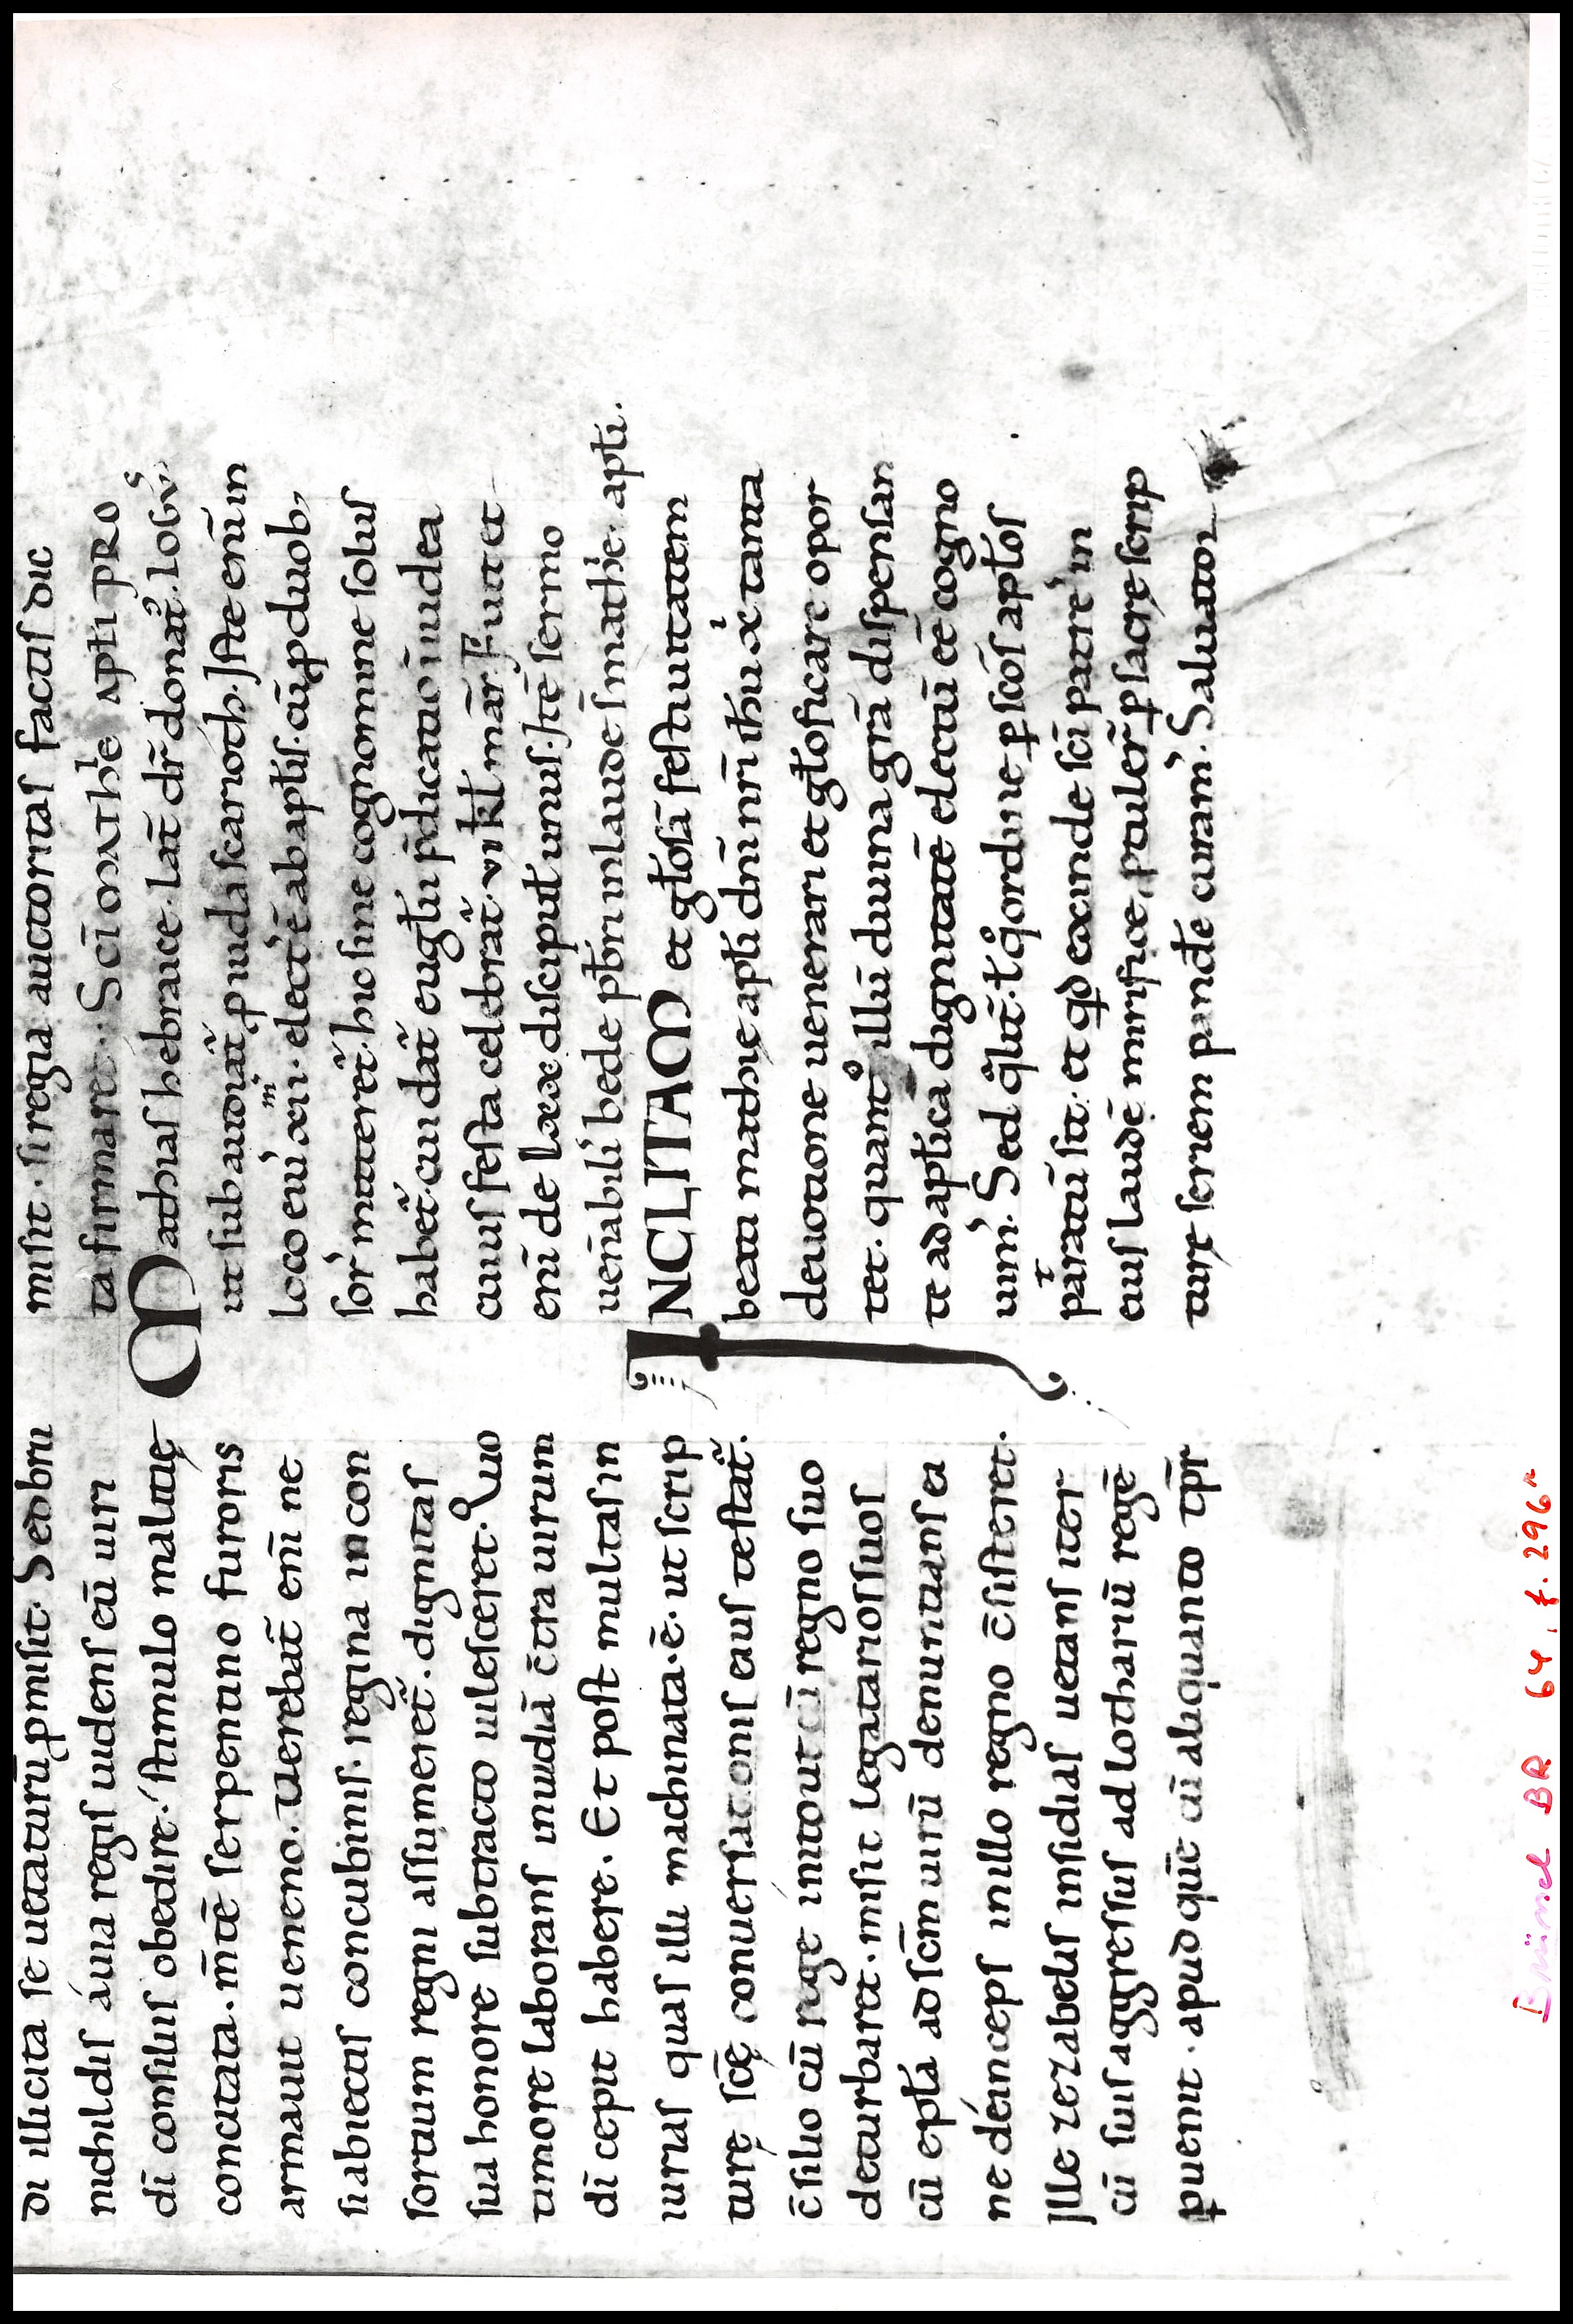 di illicita se uetaturū ꝓmisit. Sed bru
nichildis áuia regis uidens eū uiri
dī consiliis obedire. stimulo malitię
concitata. m̄tē serpentino furoris
armauit ueneno. Verebat̃ enī ne
si abiectis concubinis. regina in con
sortium regni assumeret̃. dignitas
sua honore subtracto uilesceret. Quo
timore laborans inuidiā c̄tra uirum
dī cepit habere. Et post multas in
iurias quas illi machinata. ē. ut scrip
turę scę̄ conuersationis eius testat̃.
c̄silio cū rege inito ut cū regno suo
deturbaret. misit legatarios suos
cū epła ad sc̄m uirū denuntians ei
ne deinceps in illo regno c̄sisteret.
Ille zezabelis insidias uetans iter
cū suis aggressus ad lothariū regē
ꝑuenit. apud quē cū aliquanto tp̄r
misit. si regia auctoritas factis dic
ta firmaret. Scī mathie apłi pro
Mathias hebraice. lat̄ dr̄ donat᷒. Iobis
ut subaudiat̃ ꝓ iuda scarioth. Iste enī in
loco eiu' xii. elect'ē ab apłis. cū ꝓ duob,
sor' mitteret̃. hic sine cognomine solus
habet̃. cui dat̃ eugłii p̄dicatio ī iudea
cuius festa celebrat̃. vi kł mar̄. Fuit et
enī de lxx discipuł unus. Itē sermo
uen̄abili' bede pb̄ri in laude s̄ mathie apłi.
INCLITAM et głosā festiuitatem
beati mathię apłi dn̄i nr̄i ihu xi tanta
deuotione uenerari et głoficare opor
tet. quanto illū diuina grā dispensan
te ad apłicā dignitatē electū eē cogno
uim'. Sed qłit̃. ł qo ordine ꝑ scōs apłos
paratū sit. et qd exinde scī patre' in
eius laudē mirifice ꝓtuler̄ ꝑ sacrę scrip
turę seriem pandĕ curam'. Saluator
Brüssel BR 64, f. 296r